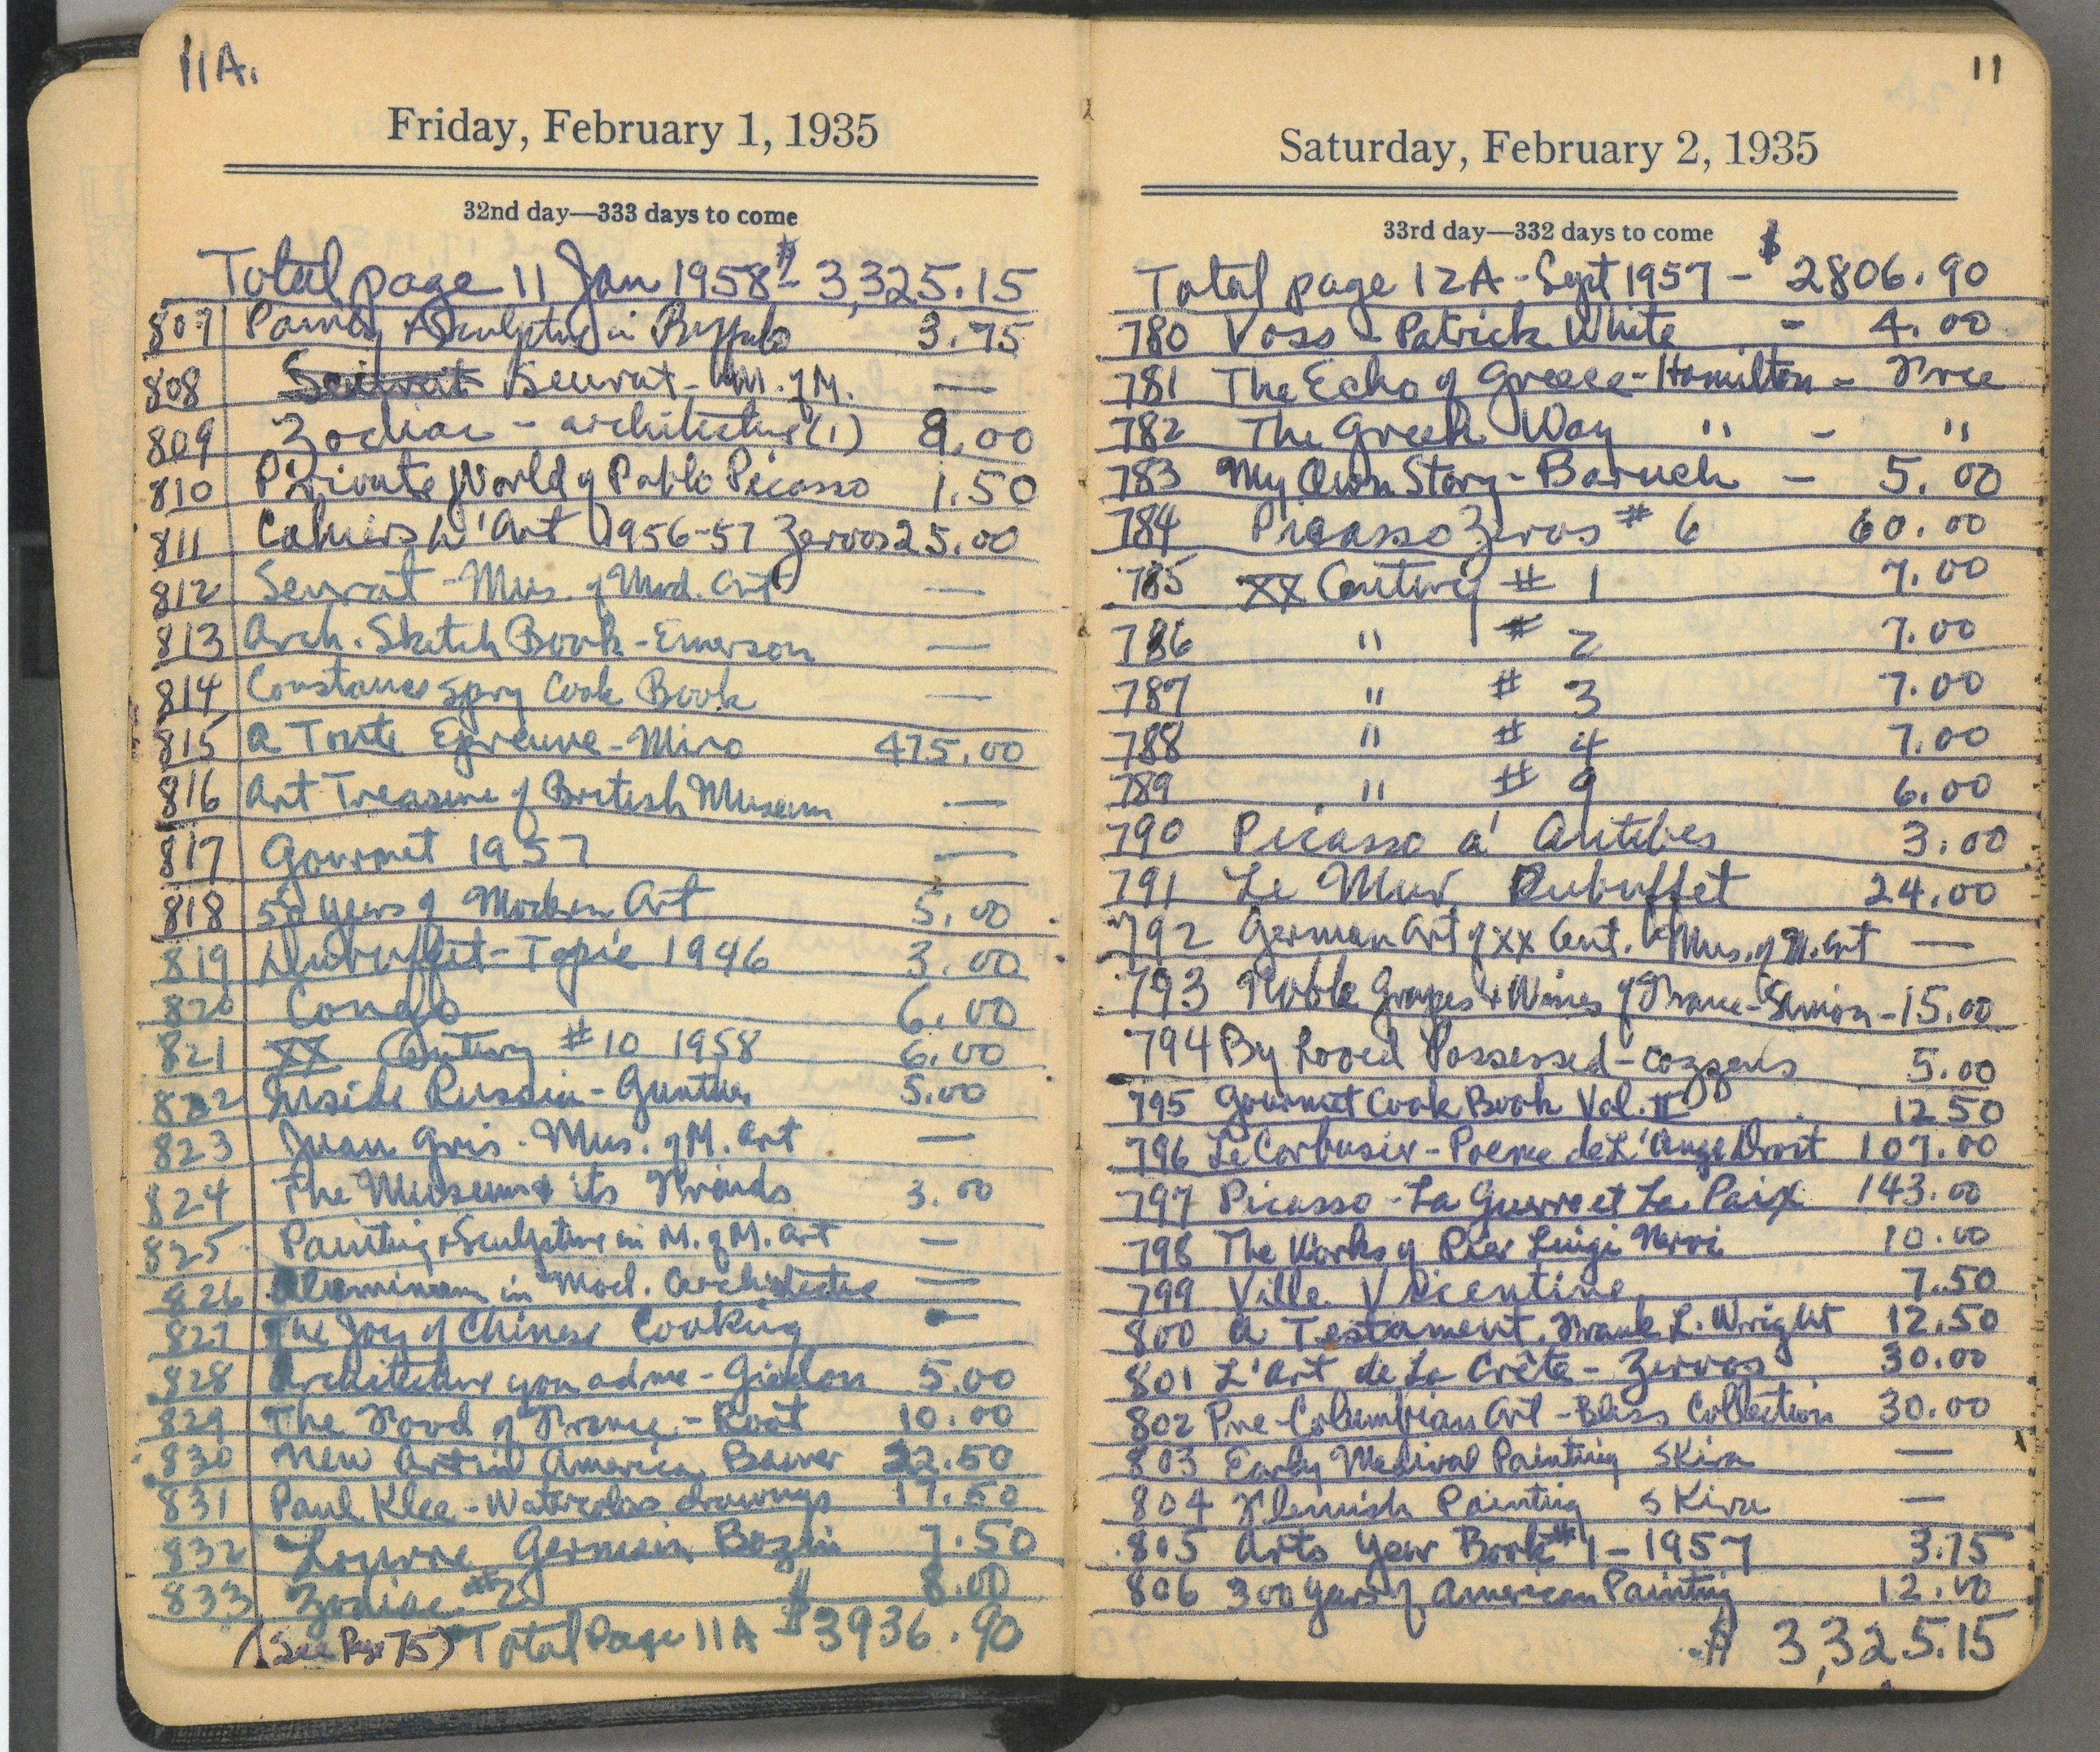 11A.
Friday, February 1, 1935
32nd day—333 days to come
Total page 11 Jan 1958 - $ 3,325.15
807 Painting & Sculpture in Buffalo 3.75
808 Seurat Seurat - M. of M. —
809 Zodiac - architecture (1) 8.00
810 Private World of Pablo Picasso 1.50
811 Cahiers D'Art 1956-57 Zervos 25.00
812 Seurat - Mus. of Mod. Art —
813 Arch. Sketch Book - Emerson —
814 Constance Spry Cook Book —
815 A Toute Epreuve - Miro 475.00
816 Art Treasure of British Museum —
817 Gourmet 1957 —
818 50 years of Modern Art 5.00
819 Dubuffet - Tapié 1946 3.00
820 Congo 6.00
821 XX Century #10 1958 6.00
822 Inside Russia - Gunther 5.00
823 Juan Gris - Mus. of M. Art —
824 The Museum & its Friends 3.00
825 Painting & Sculpture in M. of M. Art —
826 Aluminum in Mod. Architecture —
827 The Joy of Chinese Cooking —
828 Architecture you and me - Giedion 5.00
829 The Food of France - Root 10.00
830 New Art in America Bauer 22.50
831 Paul Klee - Watercolors drawings 17.50
832 Louvre Germain Bazin 7.50
833 Zodiac #2 8.00
(See Page 75) Total Page 11A $3936.90
11
Saturday, February 2, 1935
33rd day—332 days to come
Total page 12A - Sept 1957 - $ 2806.90
780 Voss - Patrick White - 4.00
781 The Echo of Greece - Hamilton - Free
782 The Greek Way " - "
783 My Own Story - Baruch - 5.00
784 Picasso Zervos # 6 60.00
785 XX Century # 1 7.00
786 " # 2 7.00
787 " # 3 7.00
788 " # 4 7.00
789 " # 9 6.00
790 Picasso a' Antibes 3.00
791 Le Mur Dubuffet 24.00
792 German Art of XX Cent. Mus. of M. Art —
793 Noble Grapes & Wines of France - Simon - 15.00
794 By Loved Possessed - Cozzens 5.00
795 Gourmet Cook Book Vol. II 12.50
796 Le Corbusier - Poeme de L'Angle Droit 107.00
797 Picasso - La Guerre et La Paix 143.00
798 The Works of Pier Luigi Nervi 10.00
799 Ville Vicentine 7.50
800 A Testament, Frank L. Wright 12.50
801 L'Art de La Crête - Zervos 30.00
802 Pre-Columbian Art - Bliss Collection 30.00
803 Early Medival Painting Skira —
804 Flemish Painting Skira —
805 Arts Year Book #1 - 1957 3.75
806 300 years of American Painting 12.00
$ 3,325.15